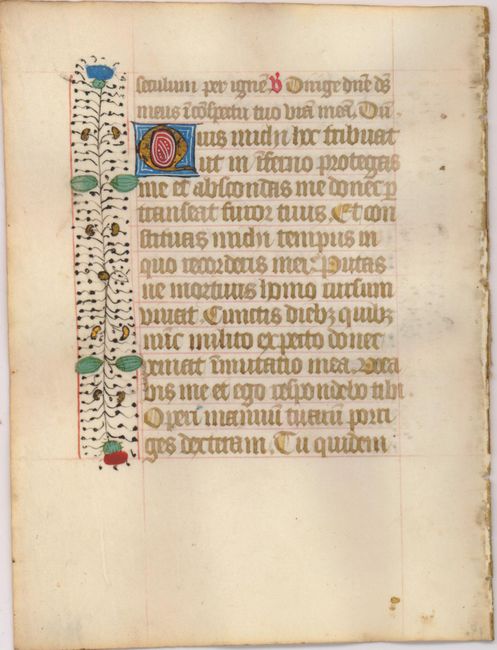 seculum per ignē ℣ Dirige dn̄e ds̄
meus ī cōspectu tuo viā meā. Qm̄
Quis michi hoc tribuat
ut in īferno protegas
me et abscondas me donec p
transeat furor tuus. Et con
stituas michi tempus in
quo recorderis mei. Putas
ne mortuus homo rursum
vivat. Cunctis diebꝫ quibꝫ
nūc milito expecto donec
veniat īmutatio mea. Voca
bis me et ego respondebo tibi
Operi manuū tuarū porri
ges dexteram. Tu quidem